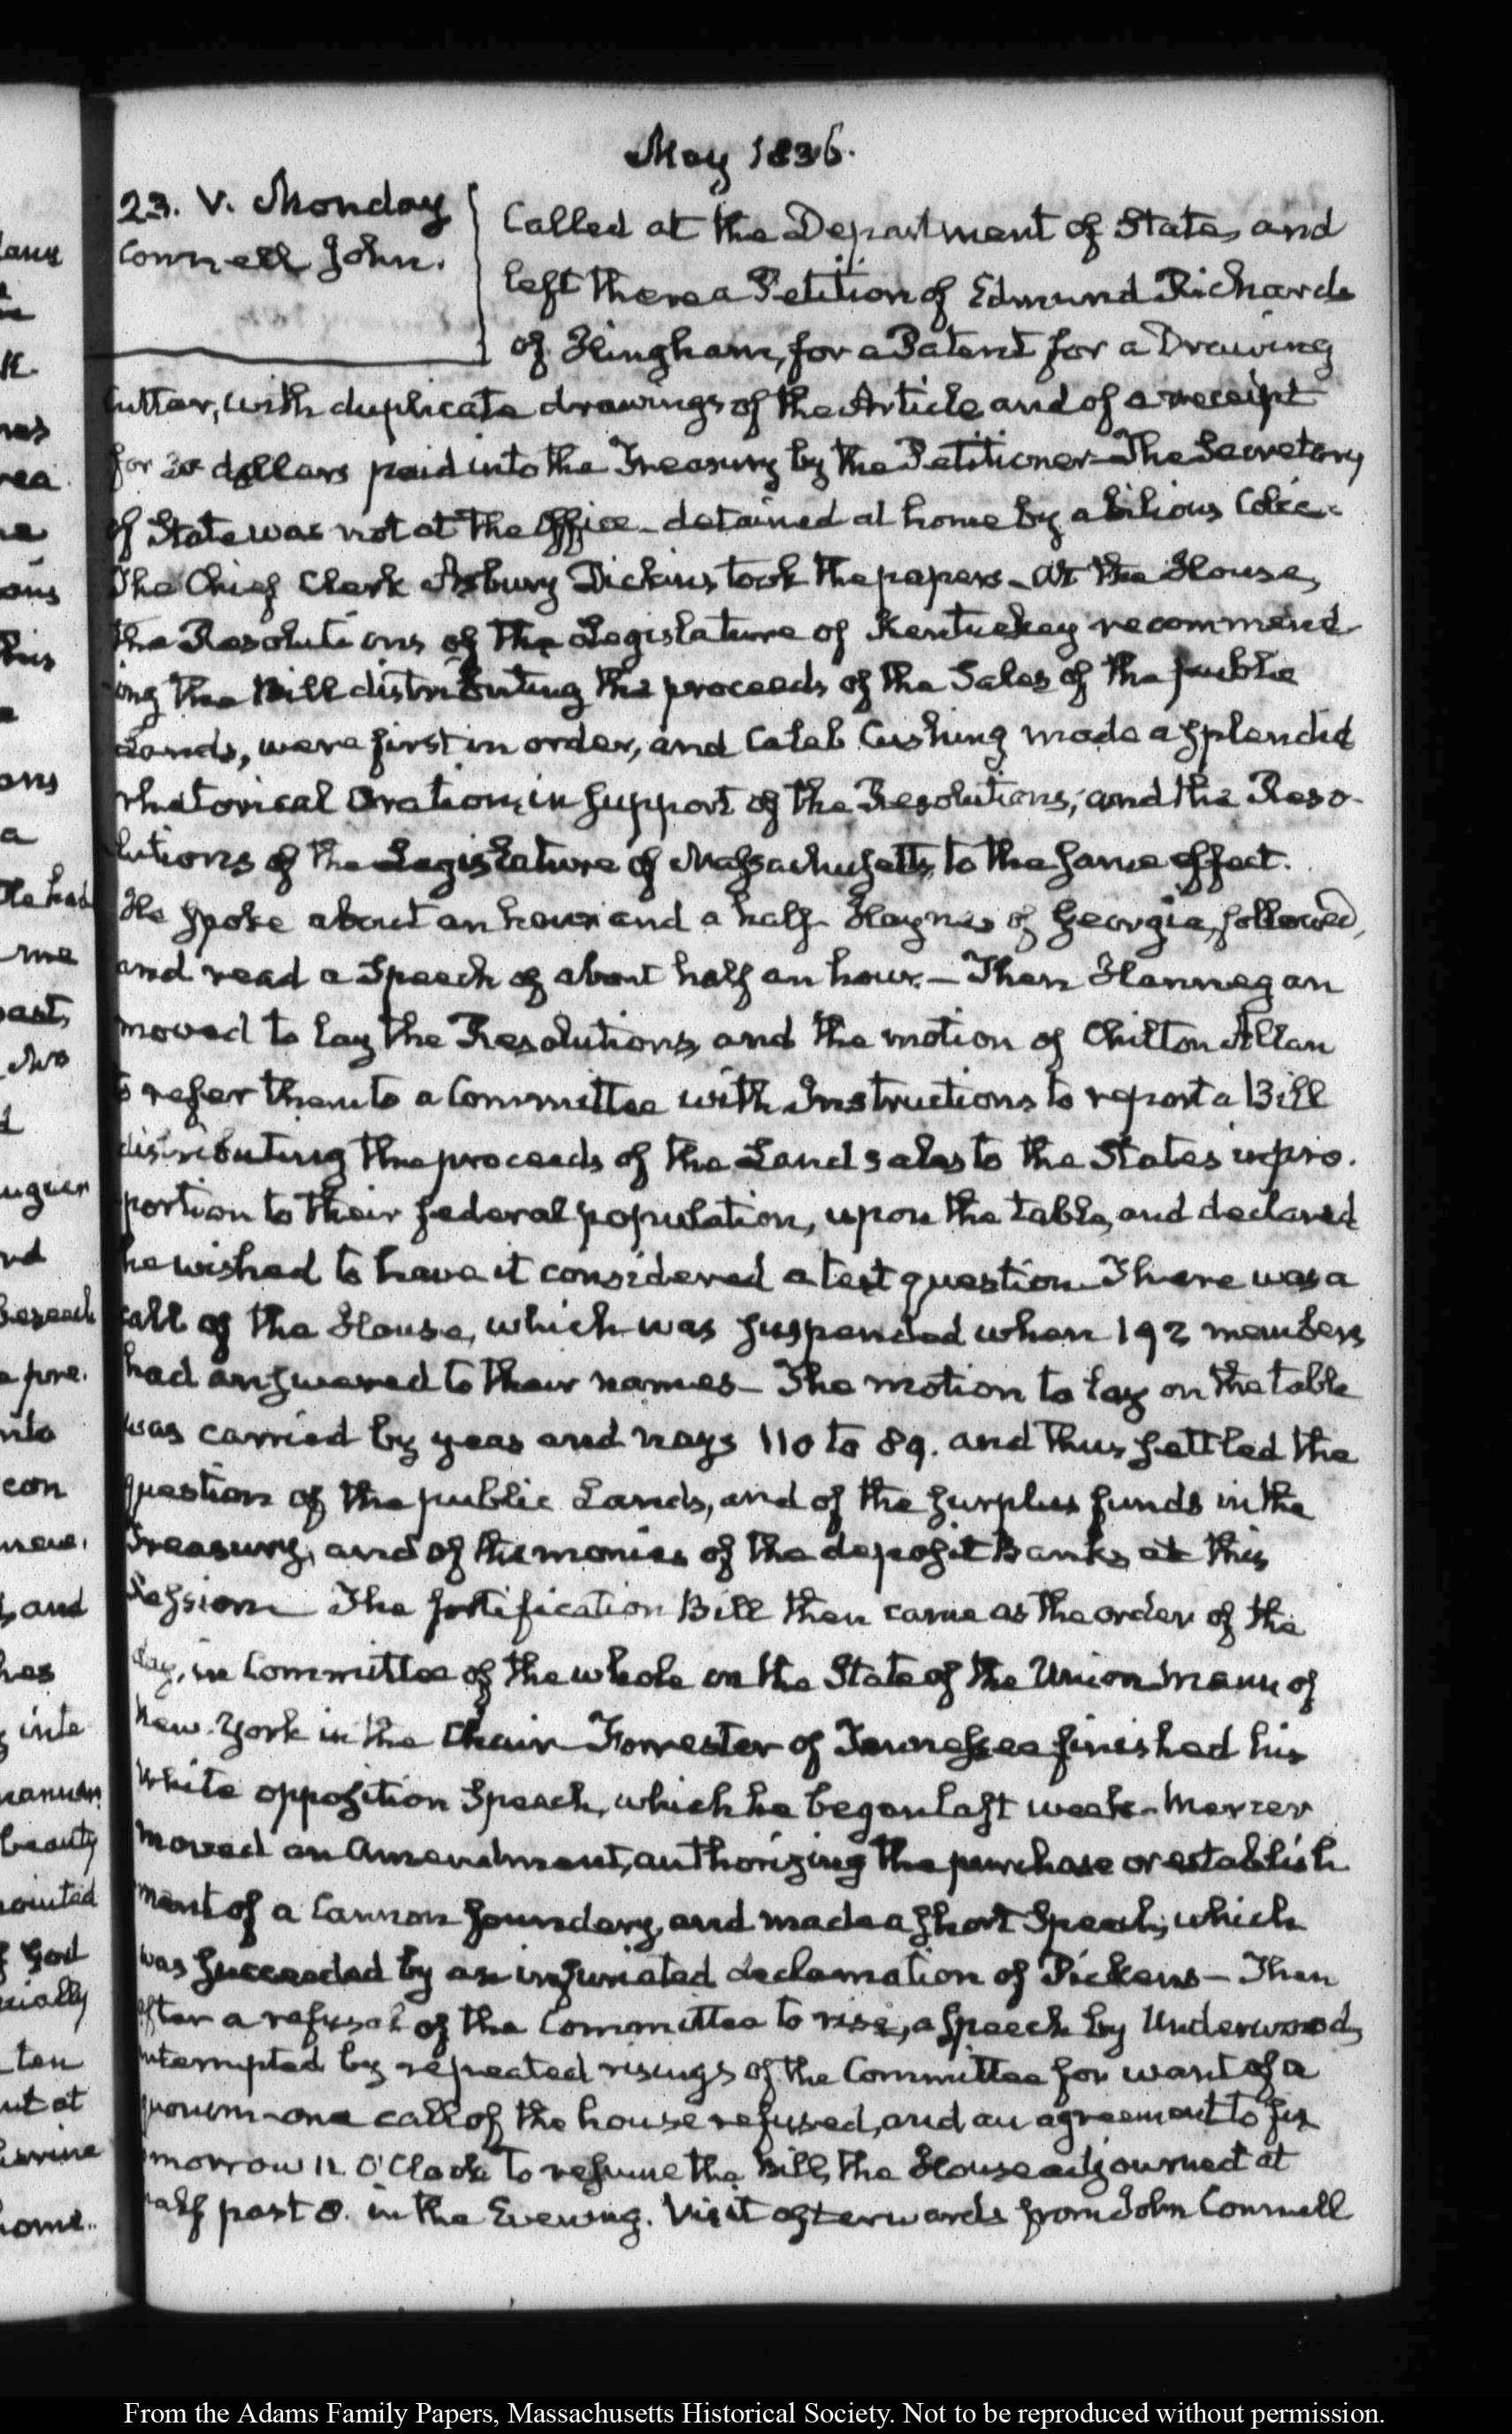 May 1836.
23. V. Monday
Connell John.
Called at the Department of State, and
left there a Petition of Edmund Richards
of Hingham, for a Patent for a Drawing
Cutter, with duplicate drawings of the Article and of a receipt
for 30 dollars paid into the Treasury by the Petitioner— The Secretary
of State was not at the Office— detained at home by a bilious Colic—
The Chief Clerk Asbury Dickins took the papers— At the House,
the Resolutions of the Legislature of Kentuckey recommend-
ing the Bill distributing the proceeds of the Sales of the public
Lands, were first in order, and Caleb Cushing made a splendid
rhetorical Oration, in support of the Resolutions, and the Reso-
lutions of the Legislature of Massachusetts, to the same effect.
He spoke about an hour and a half— Haynes of Georgia, followed,
and read a Speech of about half an hour.— Then Hannegan
moved to lay the Resolutions, and the motion of Chilton Allan
to refer them to a Committee with Instructions to report a Bill
distributing the proceeds of the Land sales to the States in pro-
portion to their federal population, upon the table, and declared
he wished to have it considered a test question— There was a
call of the House, which was suspended when 192 members
had answered to their names— The motion to lay on the table
was carried by yeas and nays 110 to 89. and thus settled the
question of the public Lands, and of the surplus funds in the
Treasury, and of the monies of the deposit Banks, at this
Session— The fortification Bill then came as the order of the
day, in Committee of the whole on the State of the Union Mann of
New-York in the Chair— Forrester of Tennessee finished his
White opposition Speech, which he began last week— Mercer
moved an Amendment, authorizing the purchase or establish
ment of a Cannon foundery, and made a short Speech, which
was succeeded by an infuriated declamation of Pickens— Then
after a refusal of the Committee to rise, a speech by Underwood,
interrupted by repeated risings of the Committee for want of a
quorum— one call of the house refused, and an agreement to fix
morrow 11. O'Clock to resume the Bill, the House adjourned at
half past 8. in the Evening. Visit afterwards from John Connell
From the Adams Family Papers, Massachusetts Historical Society. Not to be reproduced without permission.